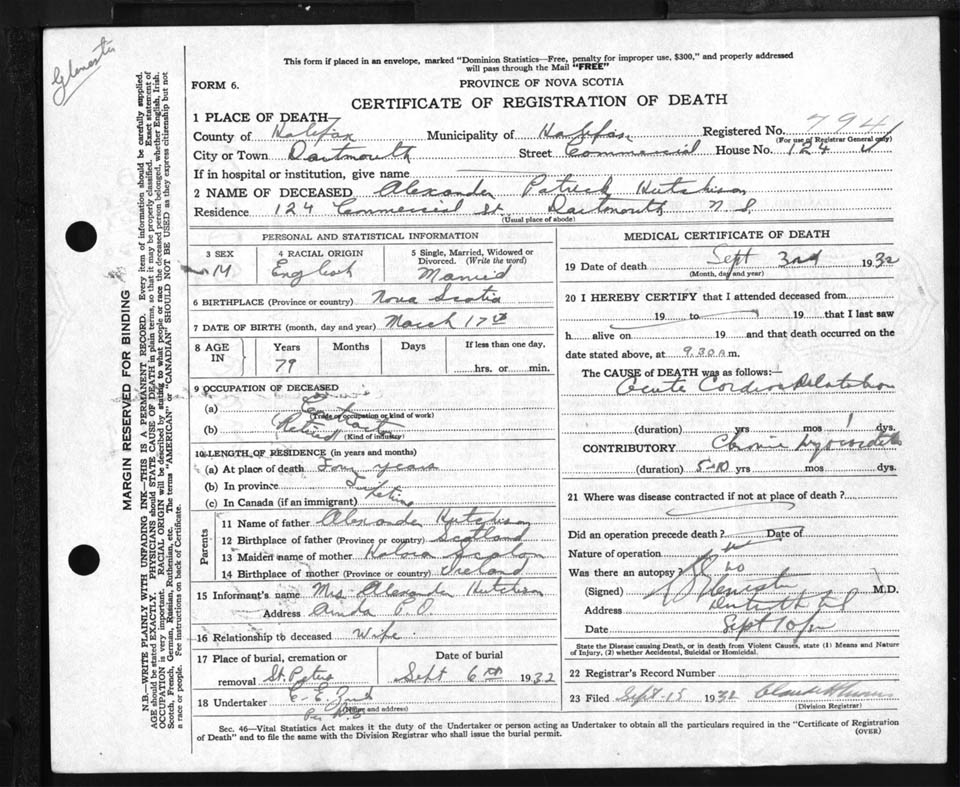 This form if placed in an envelope, marked "Dominion Statistics—Free, penalty for improper use, $300," and properly addressed
will pass through the Mail "FREE"
FORM 6.
PROVINCE OF NOVA SCOTIA
CERTIFICATE OF REGISTRATION OF DEATH
1 PLACE OF DEATH—
County of Halifax Municipality of Halifax Registered No. 794
(For use of Registrar General only)
City or Town Dartmouth Street Commercial House No. 124
If in hospital or institution, give name
2 NAME OF DECEASED Alexander Patrick Hutchison
Residence 124 Commercial St. Dartmouth N.S.
(Usual place of abode)
PERSONAL AND STATISTICAL INFORMATION
3 SEX M
4 RACIAL ORIGIN English
5 Single, Married, Widowed or Divorced. (Write the word) Married
6 BIRTHPLACE (Province or country) Nova Scotia
7 DATE OF BIRTH (month, day and year) March 17th
8 AGE IN Years Months Days If less than one day,
79 hrs. or min.
9 OCCUPATION OF DECEASED
(a)
(Trade or occupation or kind of work)
(b) Retired
(Kind of industry)
10 LENGTH OF RESIDENCE (in years and months)
(a) At place of death Four years
(b) In province Lifetime
(c) In Canada (if an immigrant)
Parents
11 Name of father Alexander Hutchison
12 Birthplace of father (Province or country) Scotland
13 Maiden name of mother
14 Birthplace of mother (Province or country) Ireland
15 Informant's name Mrs. Alexander Hutchison
Address P.O.
16 Relationship to deceased Wife.
17 Place of burial, cremation or removal St. Peters
Date of burial Sept 6th 1932
18 Undertaker
(Name and address)
MEDICAL CERTIFICATE OF DEATH
19 Date of death Sept 3rd 1932
(Month, day and year)
20 I HEREBY CERTIFY that I attended deceased from
19 to 19 that I last saw
h alive on 19 and that death occurred on the
date stated above, at 9.30 a m.
The CAUSE of DEATH was as follows:—
Acute Cardiac Dilatation
(duration) yrs mos 1 dys.
CONTRIBUTORY Chronic Myocarditis
(duration) 5-10 yrs mos dys.
21 Where was disease contracted if not at place of death ?
Did an operation precede death ? Date of
Nature of operation
Was there an autopsy? No
(Signed) M.D.
Address
Date Sept 10/32
State the Disease causing Death, or in death from Violent Causes, state (1) Means and
Nature of Injury, (2) whether Accidental, Suicidal or Homicidal.
22 Registrar's Record Number
23 Filed Sept. 15 1932
(Division Registrar)
Sec. 46—Vital Statistics Act makes it the duty of the Undertaker or person acting as Undertaker to obtain all the particulars required in the "Certificate of Registration
of Death" and to file the same with the Division Registrar who shall issue the burial permit.
(OVER)
MARGIN RESERVED FOR BINDING
N.B.—WRITE PLAINLY WITH UNFADING INK—THIS IS A PERMANENT RECORD. Every item of information should be carefully supplied.
AGE should be stated EXACTLY. PHYSICIANS should STATE CAUSE OF DEATH in plain terms, so that it may be properly classified. Exact statement of
OCCUPATION is very important. RACIAL ORIGIN will be described by stating to what people or race the deceased person belonged, whether English, Irish,
Scotch, French, German, Russian, Ruthenian, etc. The terms "AMERICAN" or "CANADIAN" SHOULD NOT BE USED as they express citizenship but not
a race or people. Fee instructions on back of Certificate.